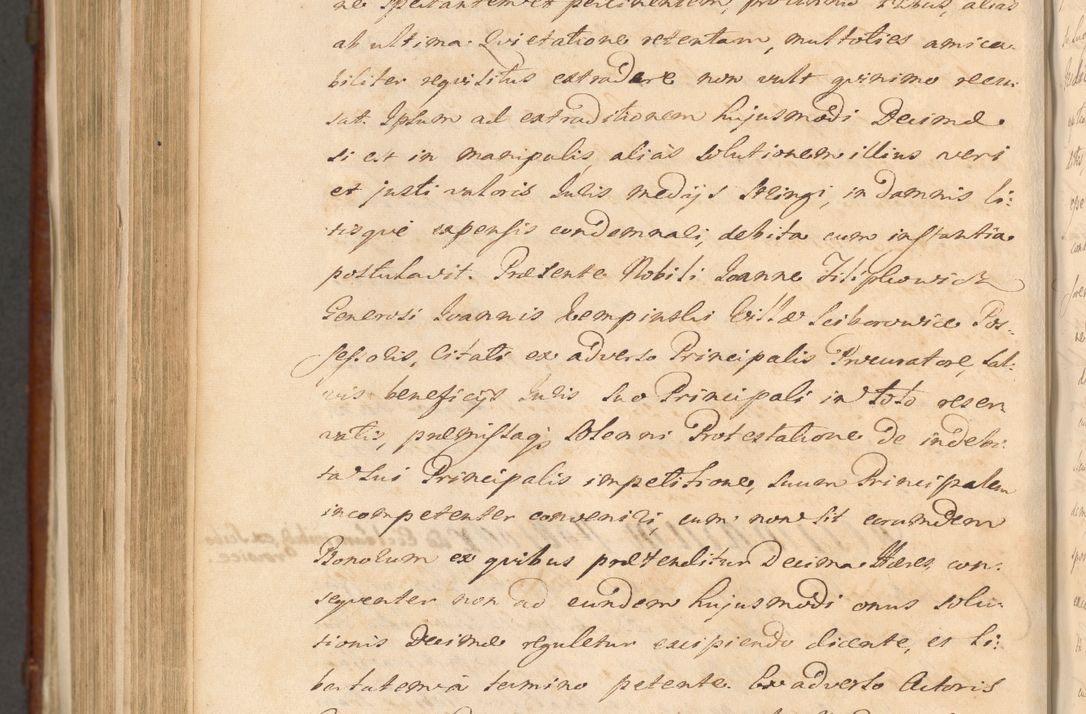 ne spectantem et pertinentem, pro
ab ultima Quietatione retentam, multoties amica-
biliter requisitus extradere non vult quinimo recu-
sat. Ipsum ad extraditionem hujusmodi Decimæ
si est in manipulis alias solutionem illius veri
et justi valoris Juris medijs stringi, in damnis li-
tisque expensis condemnari, debita cum instantia
postulavit. Præsente Nobili Joanne Filipkowicz
Generosi Joannis Kempinski Villæ Sciborowice Pos-
sessoris, Citati ex adverso Principalis Procuratore, sal-
vis beneficijs Juris suo Principali in toto reser-
vatis, præmissaq; solenni Protestatione de indebi-
ta sui Principalis impetitione, suum Principalem
incompetenter conveniri, cum non sit eorumdem
Bonorum ex quibus prætenditur Decima Hæres, con-
sequenter non ad eundem hujusmodi onus solu-
tionis Decimæ reguletur excipiendo dicente, et li-
bertatem à termino petente. Ex adverso Actoris